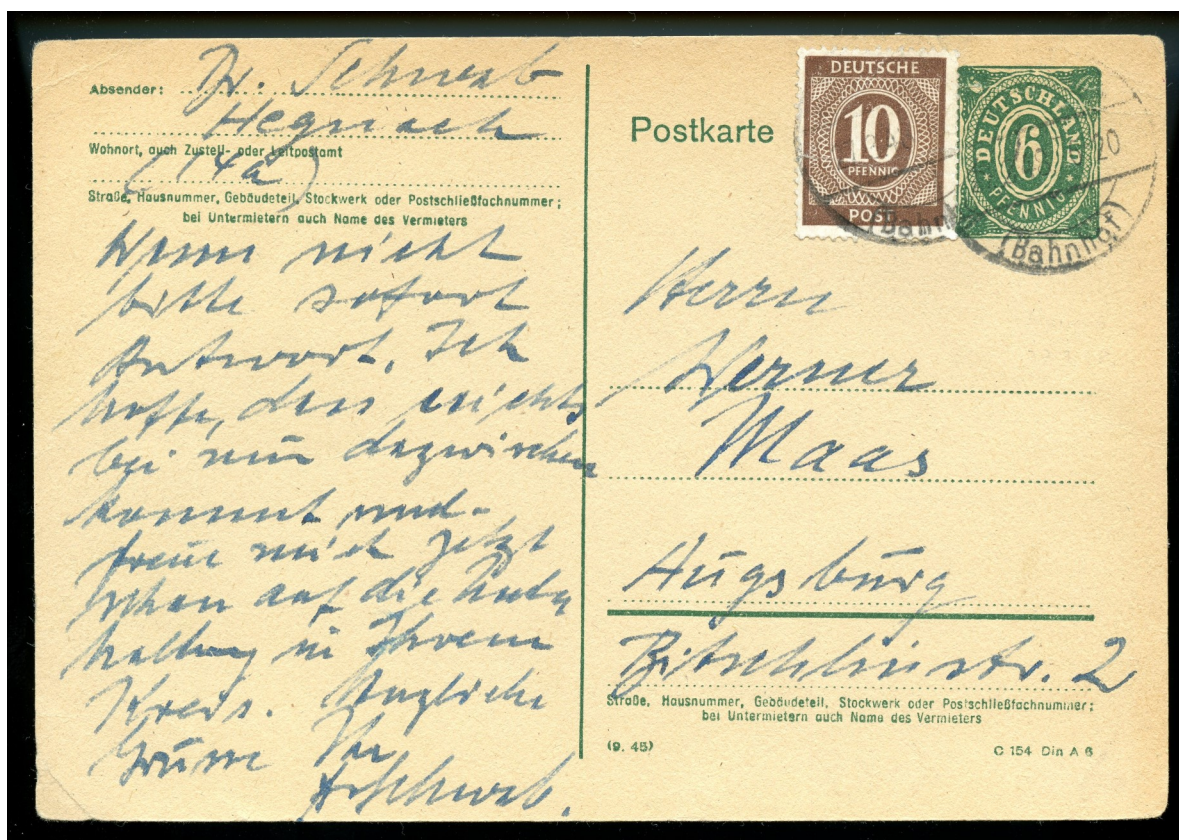 Absender: Dr. Schwab
Hegnach
Wohnort, auch Zustell- oder Leitpostamt
(14a)
Straße, Hausnummer, Gebäudeteil, Stockwerk oder Postschließfachnummer;
bei Untermietern auch Name des Vermieters
Wenn nicht
bitte sofort
Antwort. Ich
hoffe, dass nichts
bei mir dazwischen
kommt und
freue mich jetzt
schon auf die
in Ihrem
Kreis.
Grüsse Ihr
Schwab.
Postkarte
DEUTSCHE
10
PFENNIG
POST
DEUTSCHLAND
6
PFENNIG
20
(Bahnhof)
Herrn
Werner
Maas
Augsburg
Bitschlinstr. 2
Straße, Hausnummer, Gebäudeteil, Stockwerk oder Postschließfachnummer;
bei Untermietern auch Name des Vermieters
(9. 45)
C 154 Din A 6